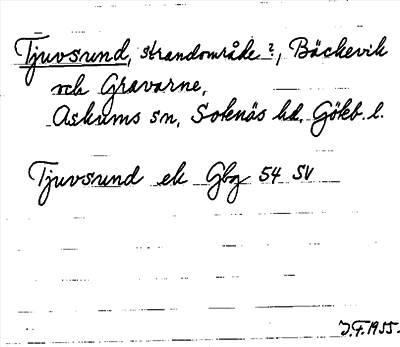 Tjuvsund, strandområde?, Bäckevik
och Gravarne,
Askums sn, Sotenäs hd. Göteb. l.
Tjuvsund ek Gbg 54 SV
J.F. 1955.